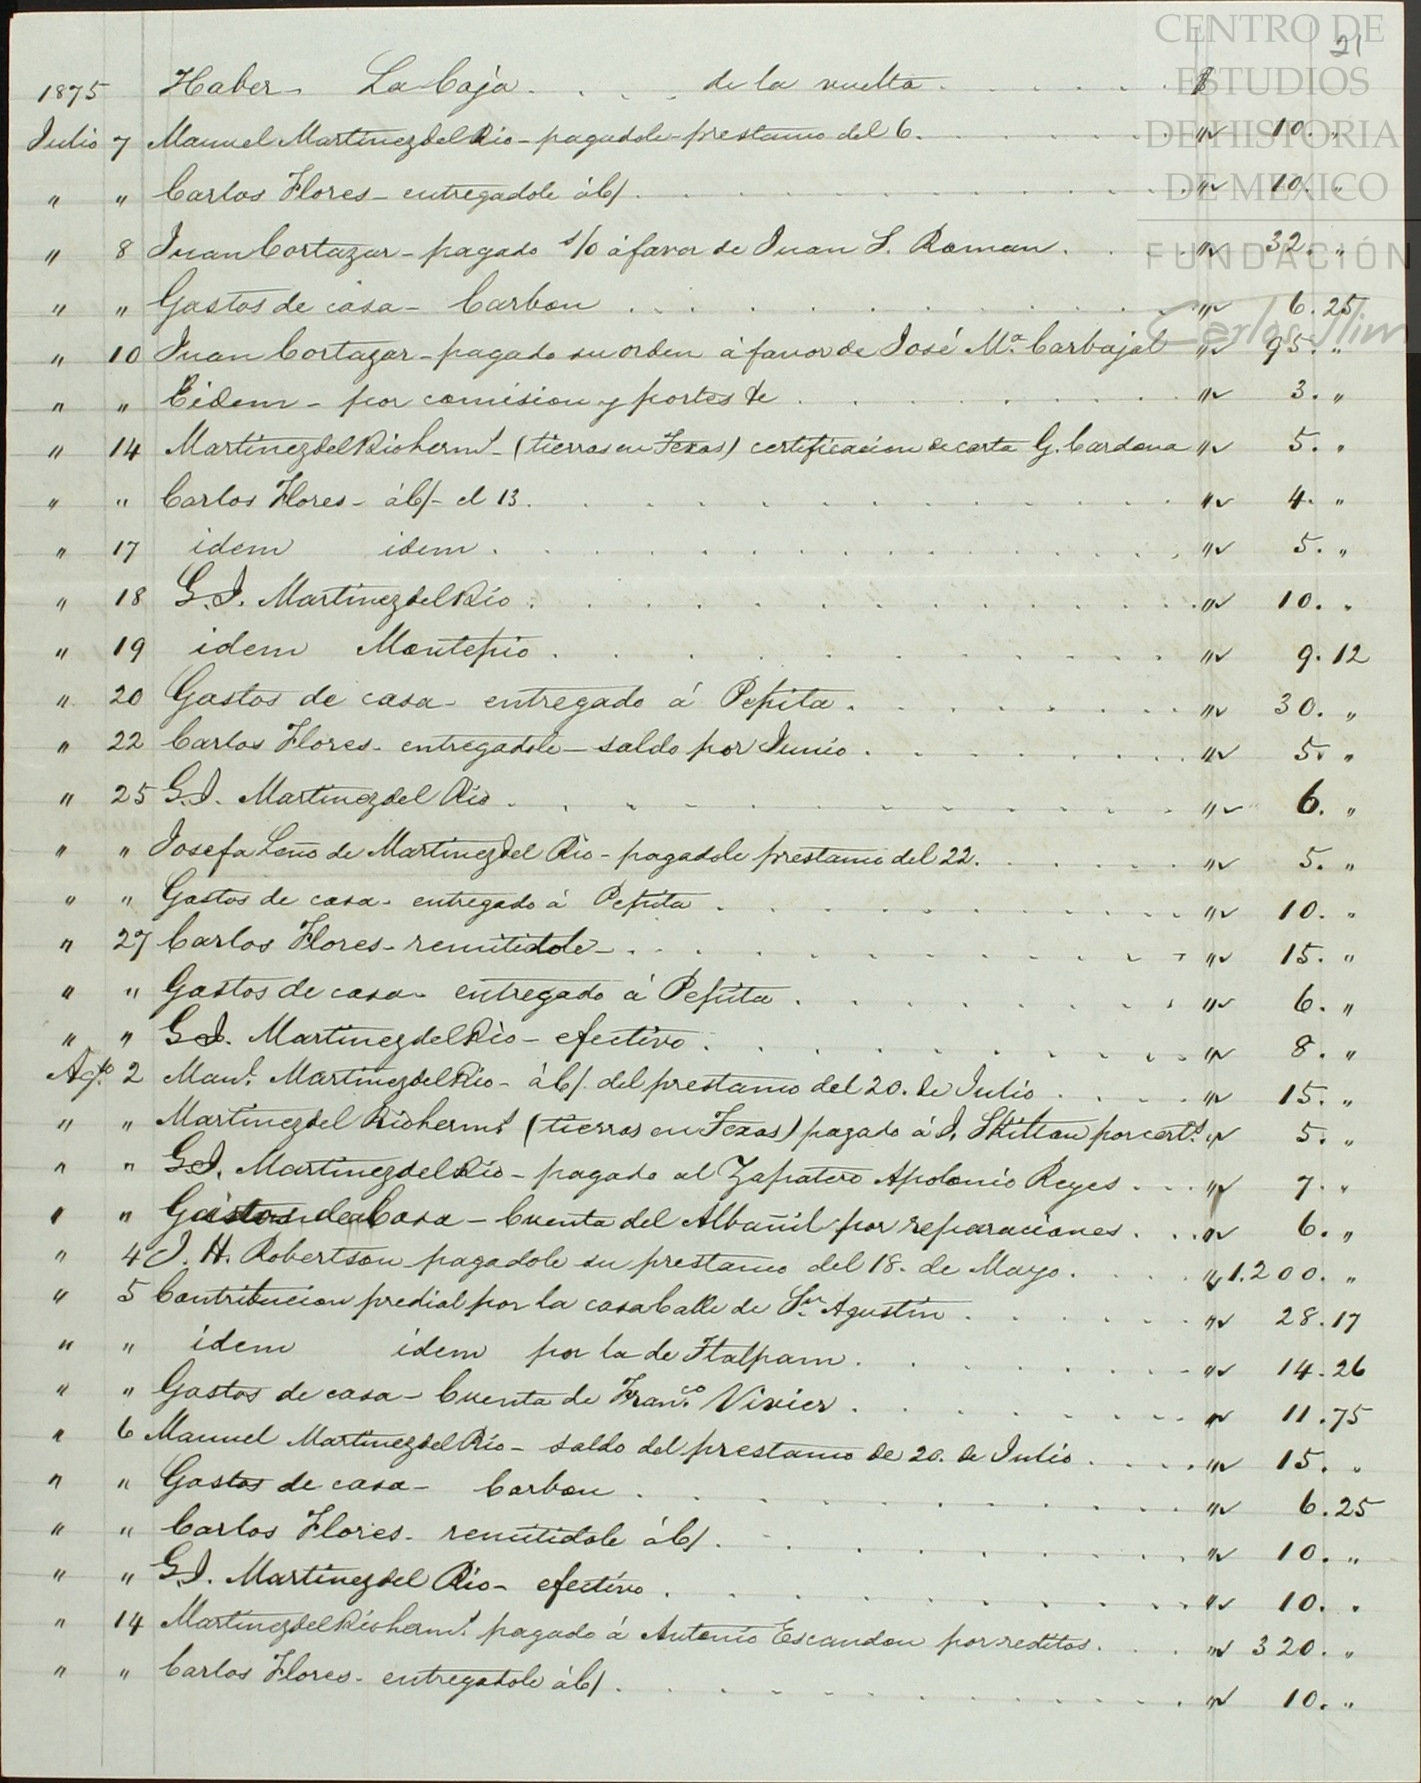 CENTRO DE
ESTUDIOS
DE HISTORIA
DE MÉXICO
FUNDACIÓN
Carlos Slim
21
1875 Haber - La Caja . . . . de la vuelta . . . . . . $
Julio 7 Manuel Martinez del Rio - pagadole prestamo del 6. . . . . " 10. "
" " Carlos Flores - entregadole á c/ . . . . . " 10. "
" 8 Juan Cortazar - pagado s/o á favor de Juan S. Roman . . . . " 32. "
" " Gastos de casa - Carbon . . . . . " 6.25
" 10 Juan Cortazar - pagado su orden á favor de José Ma. Carbajal " 95. "
" " Eidem - por comision y portes &c . . . . . " 3. "
" 14 Martinez del Rio herms. - (tierras en Texas) certificacion de carta G. Cardona " 5. "
" " Carlos Flores - á c/ - el 13. . . . . " 4. "
" 17 idem idem . . . . . " 5. "
" 18 G.I. Martinez del Rio . . . . . " 10. "
" 19 idem Montepio . . . . . " 9.12
" 20 Gastos de casa - entregado á Pepita . . . . . " 30. "
" 22 Carlos Flores - entregadole - saldo por Junio . . . . . " 5. "
" 25 G.I. Martinez del Rio . . . . . " 6. "
" " Josefa Leño de Martinez del Rio - pagadole prestamo del 22. . . . . " 5. "
" " Gastos de casa - entregado á Pepita . . . . . " 10. "
" 27 Carlos Flores - remitidole - . . . . . " 15. "
" " Gastos de casa - entregado á Pepita . . . . . " 6. "
" " G.I. Martinez del Rio - efectivo . . . . . " 8. "
Agto. 2 Manl. Martinez del Rio - á c/. del prestamo del 20. de Julio . . . . " 15. "
" " Martinez del Rio herms. (tierras en Texas) pagado á J. Skilton por certs. " 5. "
" " G.I. Martinez del Rio - pagado al Zapatero Apolonio Reyes . . . " 7. "
" " Gastos de Casa - Cuenta del Albañil por reparaciones . . . " 6. "
" 4 J. H. Robertson pagadole su prestamo del 18. de Mayo . . . . " 1.200. "
" 5 Contribucion predial por la casa Calle de Sn. Agustin . . . . . " 28.17
" " idem idem por la de Tlalpam . . . . . " 14.26
" " Gastos de casa - Cuenta de Franco. Vivier . . . . . " 11.75
" 6 Manuel Martinez del Rio - saldo del prestamo de 20. de Julio . . . . " 15. "
" " Gastos de casa - Carbon . . . . . " 6.25
" " Carlos Flores - remitidole á c/ . . . . . " 10. "
" " G.I. Martinez del Rio - efectivo . . . . . " 10. "
" 14 Martinez del Rio herms. pagado á Antonio Escandon por reditos . . . . " 320. "
" " Carlos Flores - entregadole á c/ . . . . . " 10. "